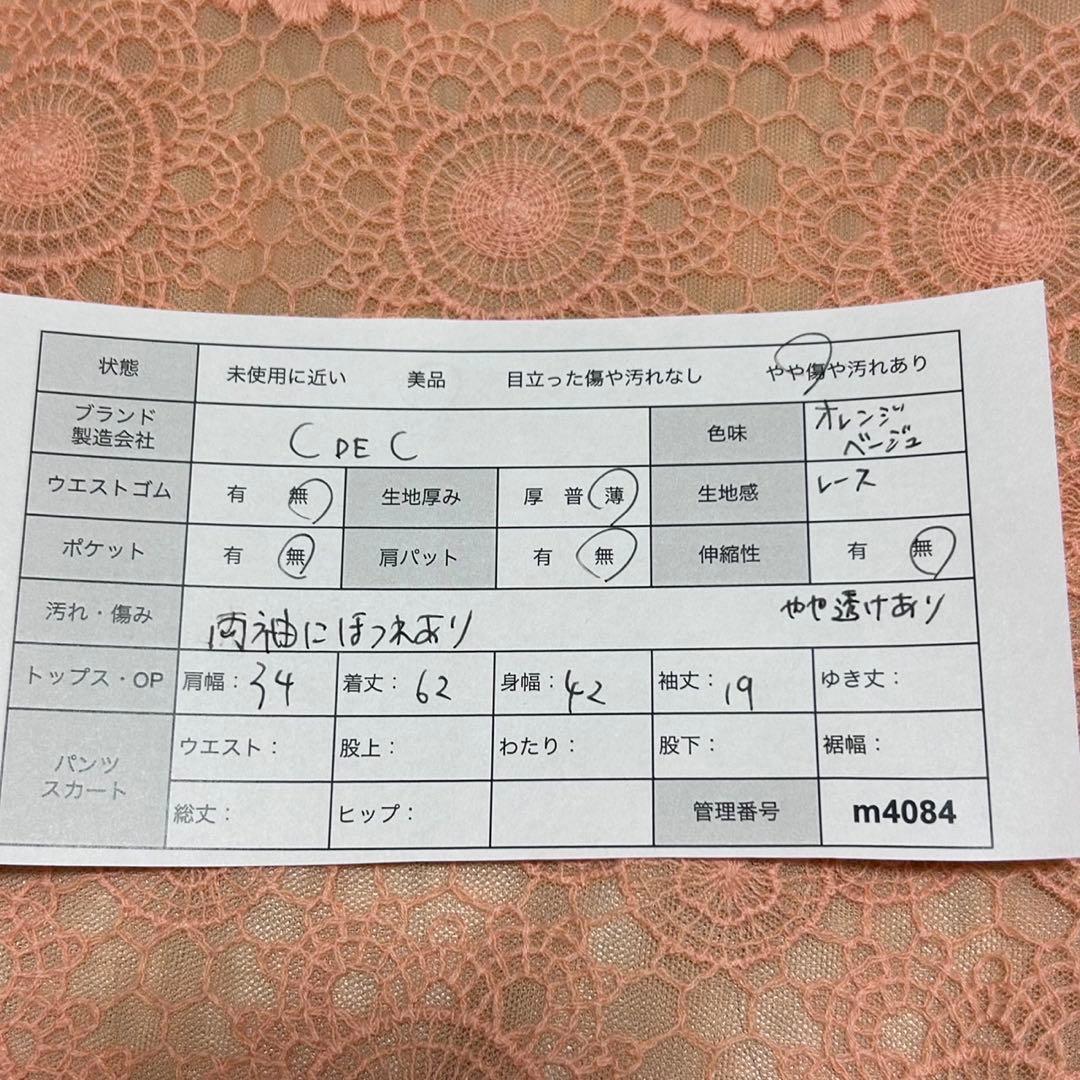 状態 未使用に近い 美品 目立った傷や汚れなし やや傷や汚れあり
ブランド製造会社 C DE C 色味 オレンジ ベージュ
ウエストゴム 有 無 生地厚み 厚 普 薄 生地感 レース
ポケット 有 無 肩パット 有 無 伸縮性 有 無
汚れ・傷み 両袖にほつれあり やや透けあり
トップス・OP 肩幅：34 着丈：62 身幅：42 袖丈：19 ゆき丈：
パンツ スカート ウエスト： 股上： わたり： 股下： 裾幅：
総丈： ヒップ： 管理番号 m4084